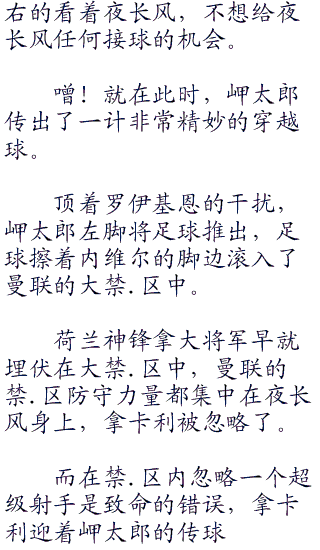 右的看着夜长风，不想给夜
长风任何接球的机会。
噌！就在此时，岬太郎
传出了一计非常精妙的穿越
球。
顶着罗伊基恩的干扰，
岬太郎左脚将足球推出，足
球擦着内维尔的脚边滚入了
曼联的大禁.区中。
荷兰神锋拿大将军早就
埋伏在大禁.区中，曼联的
禁.区防守力量都集中在夜长
风身上，拿卡利被忽略了。
而在禁.区内忽略一个超
级射手是致命的错误，拿卡
利迎着岬太郎的传球